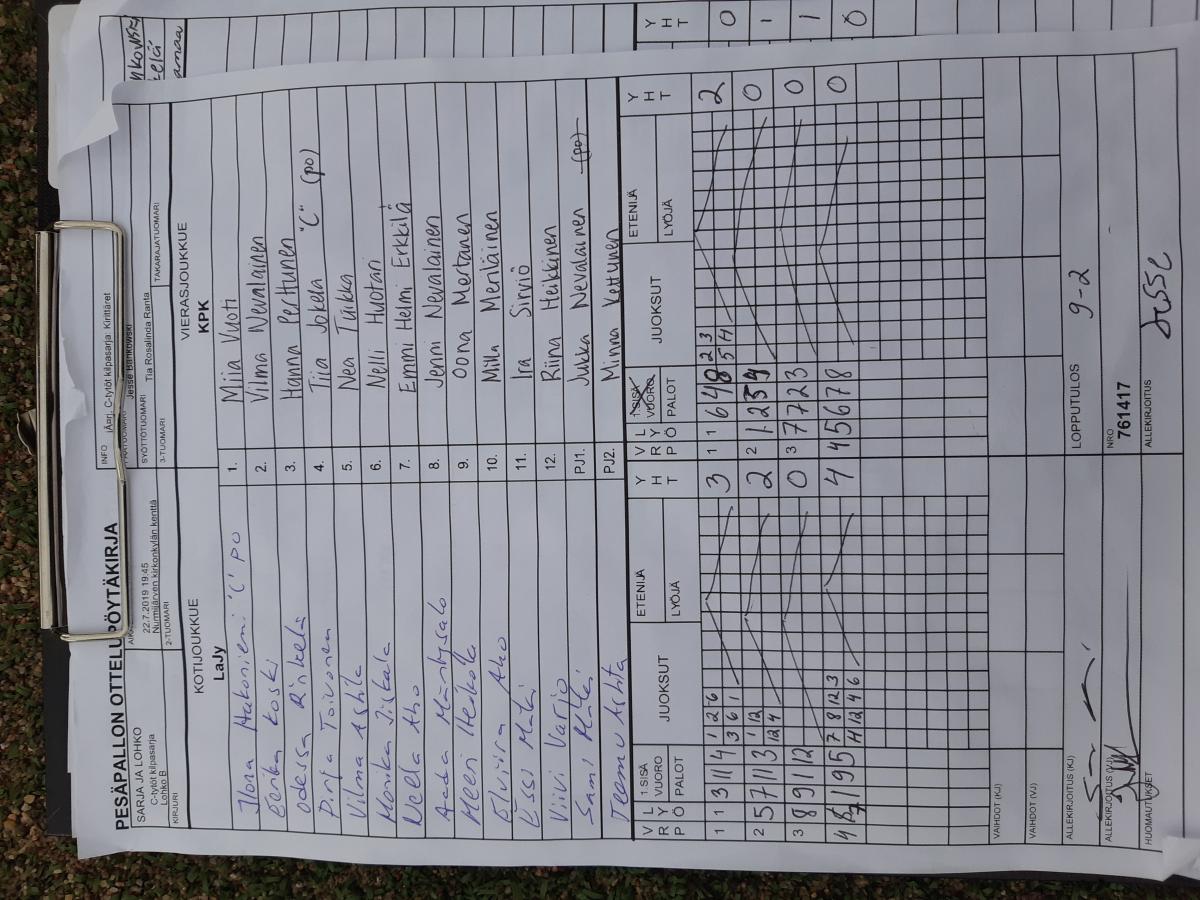 PESÄPALLON OTTELUPÖYTÄKIRJA
SARJA JA LOHKO
C-tytöt kilpasarja
Lohko B
22.7.2019 19:45
Nurmijärven kirkonkylän kenttä
INFO
C-tytöt kilpasarja Kirittäret
SYÖTTÖTUOMARI
Tia Rosalinda Ranta
KIRJURI
2-TUOMARI
3-TUOMARI
TAKARAJATUOMARI
KOTIJOUKKUE
LaJy
VIERASJOUKKUE
KPK
Ilona Hakoniemi "C" PO
1.
Miia Vuoti
Eerika Koski
2.
Vilma Nevalainen
Odessa Rinkelä
3.
Hanna Perttunen
Pinja Toivonen
4.
Tiia Jokela "C" (po)
Vilma Ashta
5.
Nea Tuikka
Monika Jiskala
6.
Nelli Huotari
Nella Aho
7.
Emmi Helmi Erkkilä
Aada Mäntysalo
8.
Jenni Nevalainen
Meeri Heikola
9.
Oona Mertanen
Elviira Aho
10.
Milla Meriläinen
Essi Mäki
11.
Ira Sirviö
Viivi Varjo
12.
Riina Heikkinen
Sami Mäki
PJ1.
Jukka Nevalainen (po)
Teemu Ashta
PJ2.
Minna Kettunen
V R P L Y Ö 1.SISÄ VUORO PALOT JUOKSUT ETENIJÄ LYÖJÄ Y H T
V R P L Y Ö 1.SISÄ VUORO PALOT JUOKSUT ETENIJÄ LYÖJÄ Y H T
1 1 3 11 4 1 2 6 3
3 6 1
1 1 6 4 8 2 3 2
5 H
2 5 7 11 3 1 12 2
12 4
2 1 2 3 9 0
3 8 9 1 12 0
3 7 7 2 3 0
4 1 9 5 7 8 12 3 4
H 12 4 6
4 4 5 6 7 8 0
VAIHDOT (KJ)
VAIHDOT (VJ)
ALLEKIRJOITUS (KJ)
LOPPUTULOS
9-2
ALLEKIRJOITUS (VJ)
NRO
761417
HUOMAUTUKSET
ALLEKIRJOITUS
Jesse
Y H T
0
1
1
0